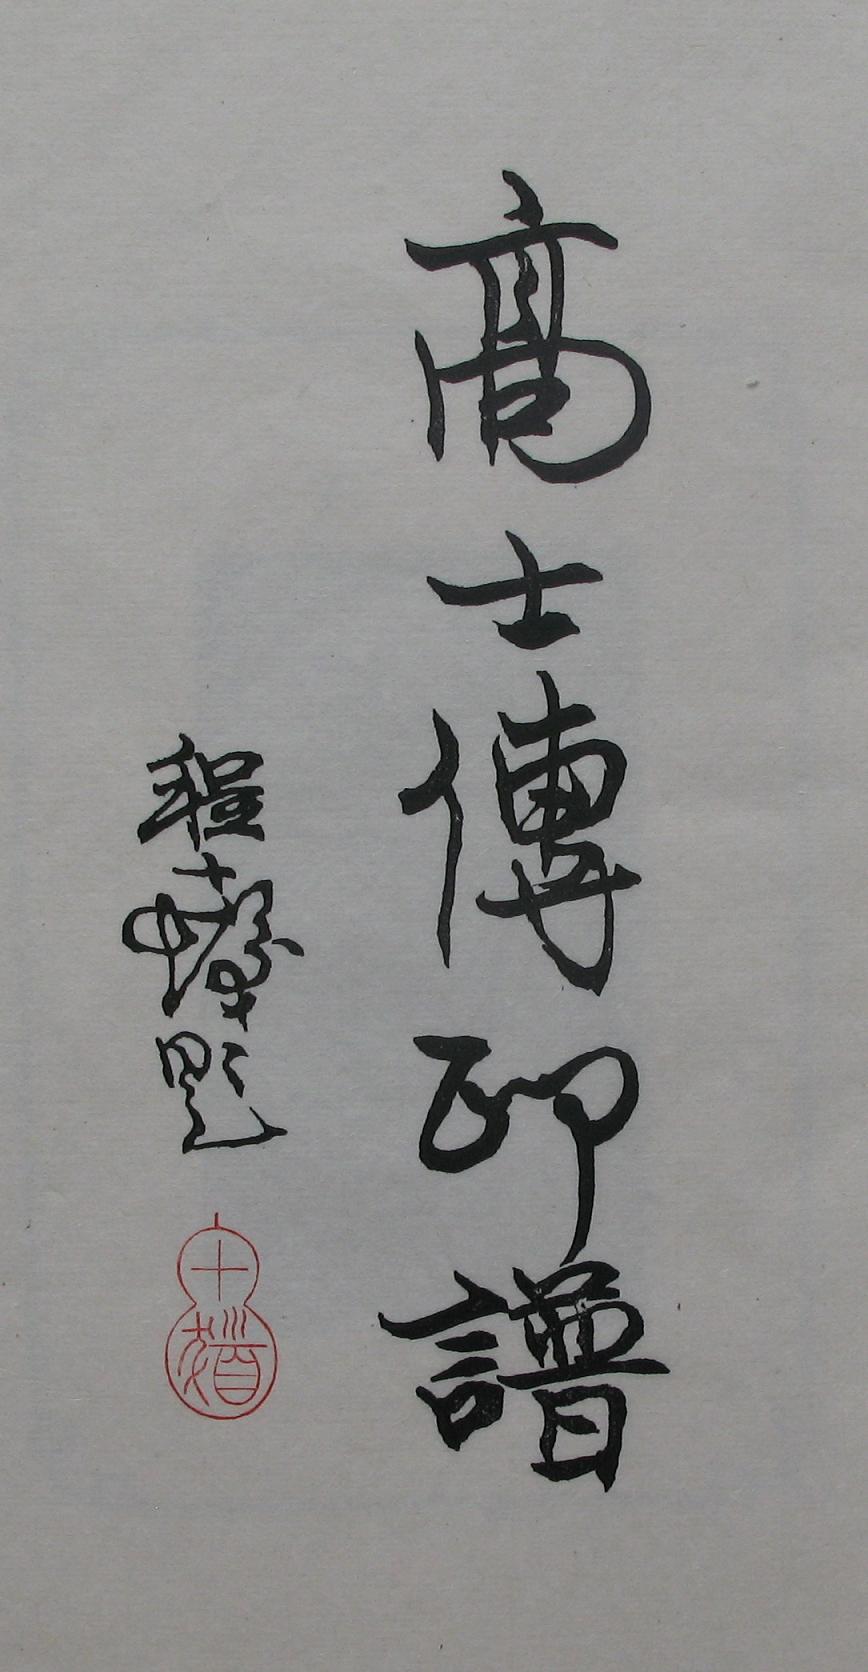 高士傳印譜
程十發題
十髮